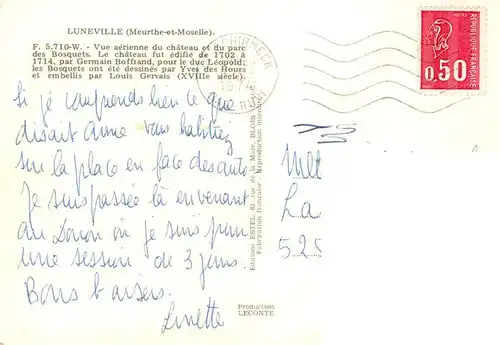 LUNEVILLE (Meurthe-et-Moselle).
F. 5.710-W. - Vue aérienne du château et du parc
des Bosquets. Le château fut édifié de 1702 à
1714, par Germain Boffrand, pour le duc Léopold;
les Bosquets ont été dessinés par Yves des Hours
et embellis par Louis Gervais (XVIIIe siècle).
Si je comprends bien ce que
disait Anne vous habitiez
sur la place en face des autos
Je suis passée là en venant
au Donon où je suis pour
une session de 3 jours
Bons baisers.
Linette
Editions ESTEL, rue de la Mare, BLOIS
Fabrication française - Reproduction interdite
Production
LECONTE
SCHIRMECK
REPUBLIQUE FRANCAISE
0,50
Mll
La
525